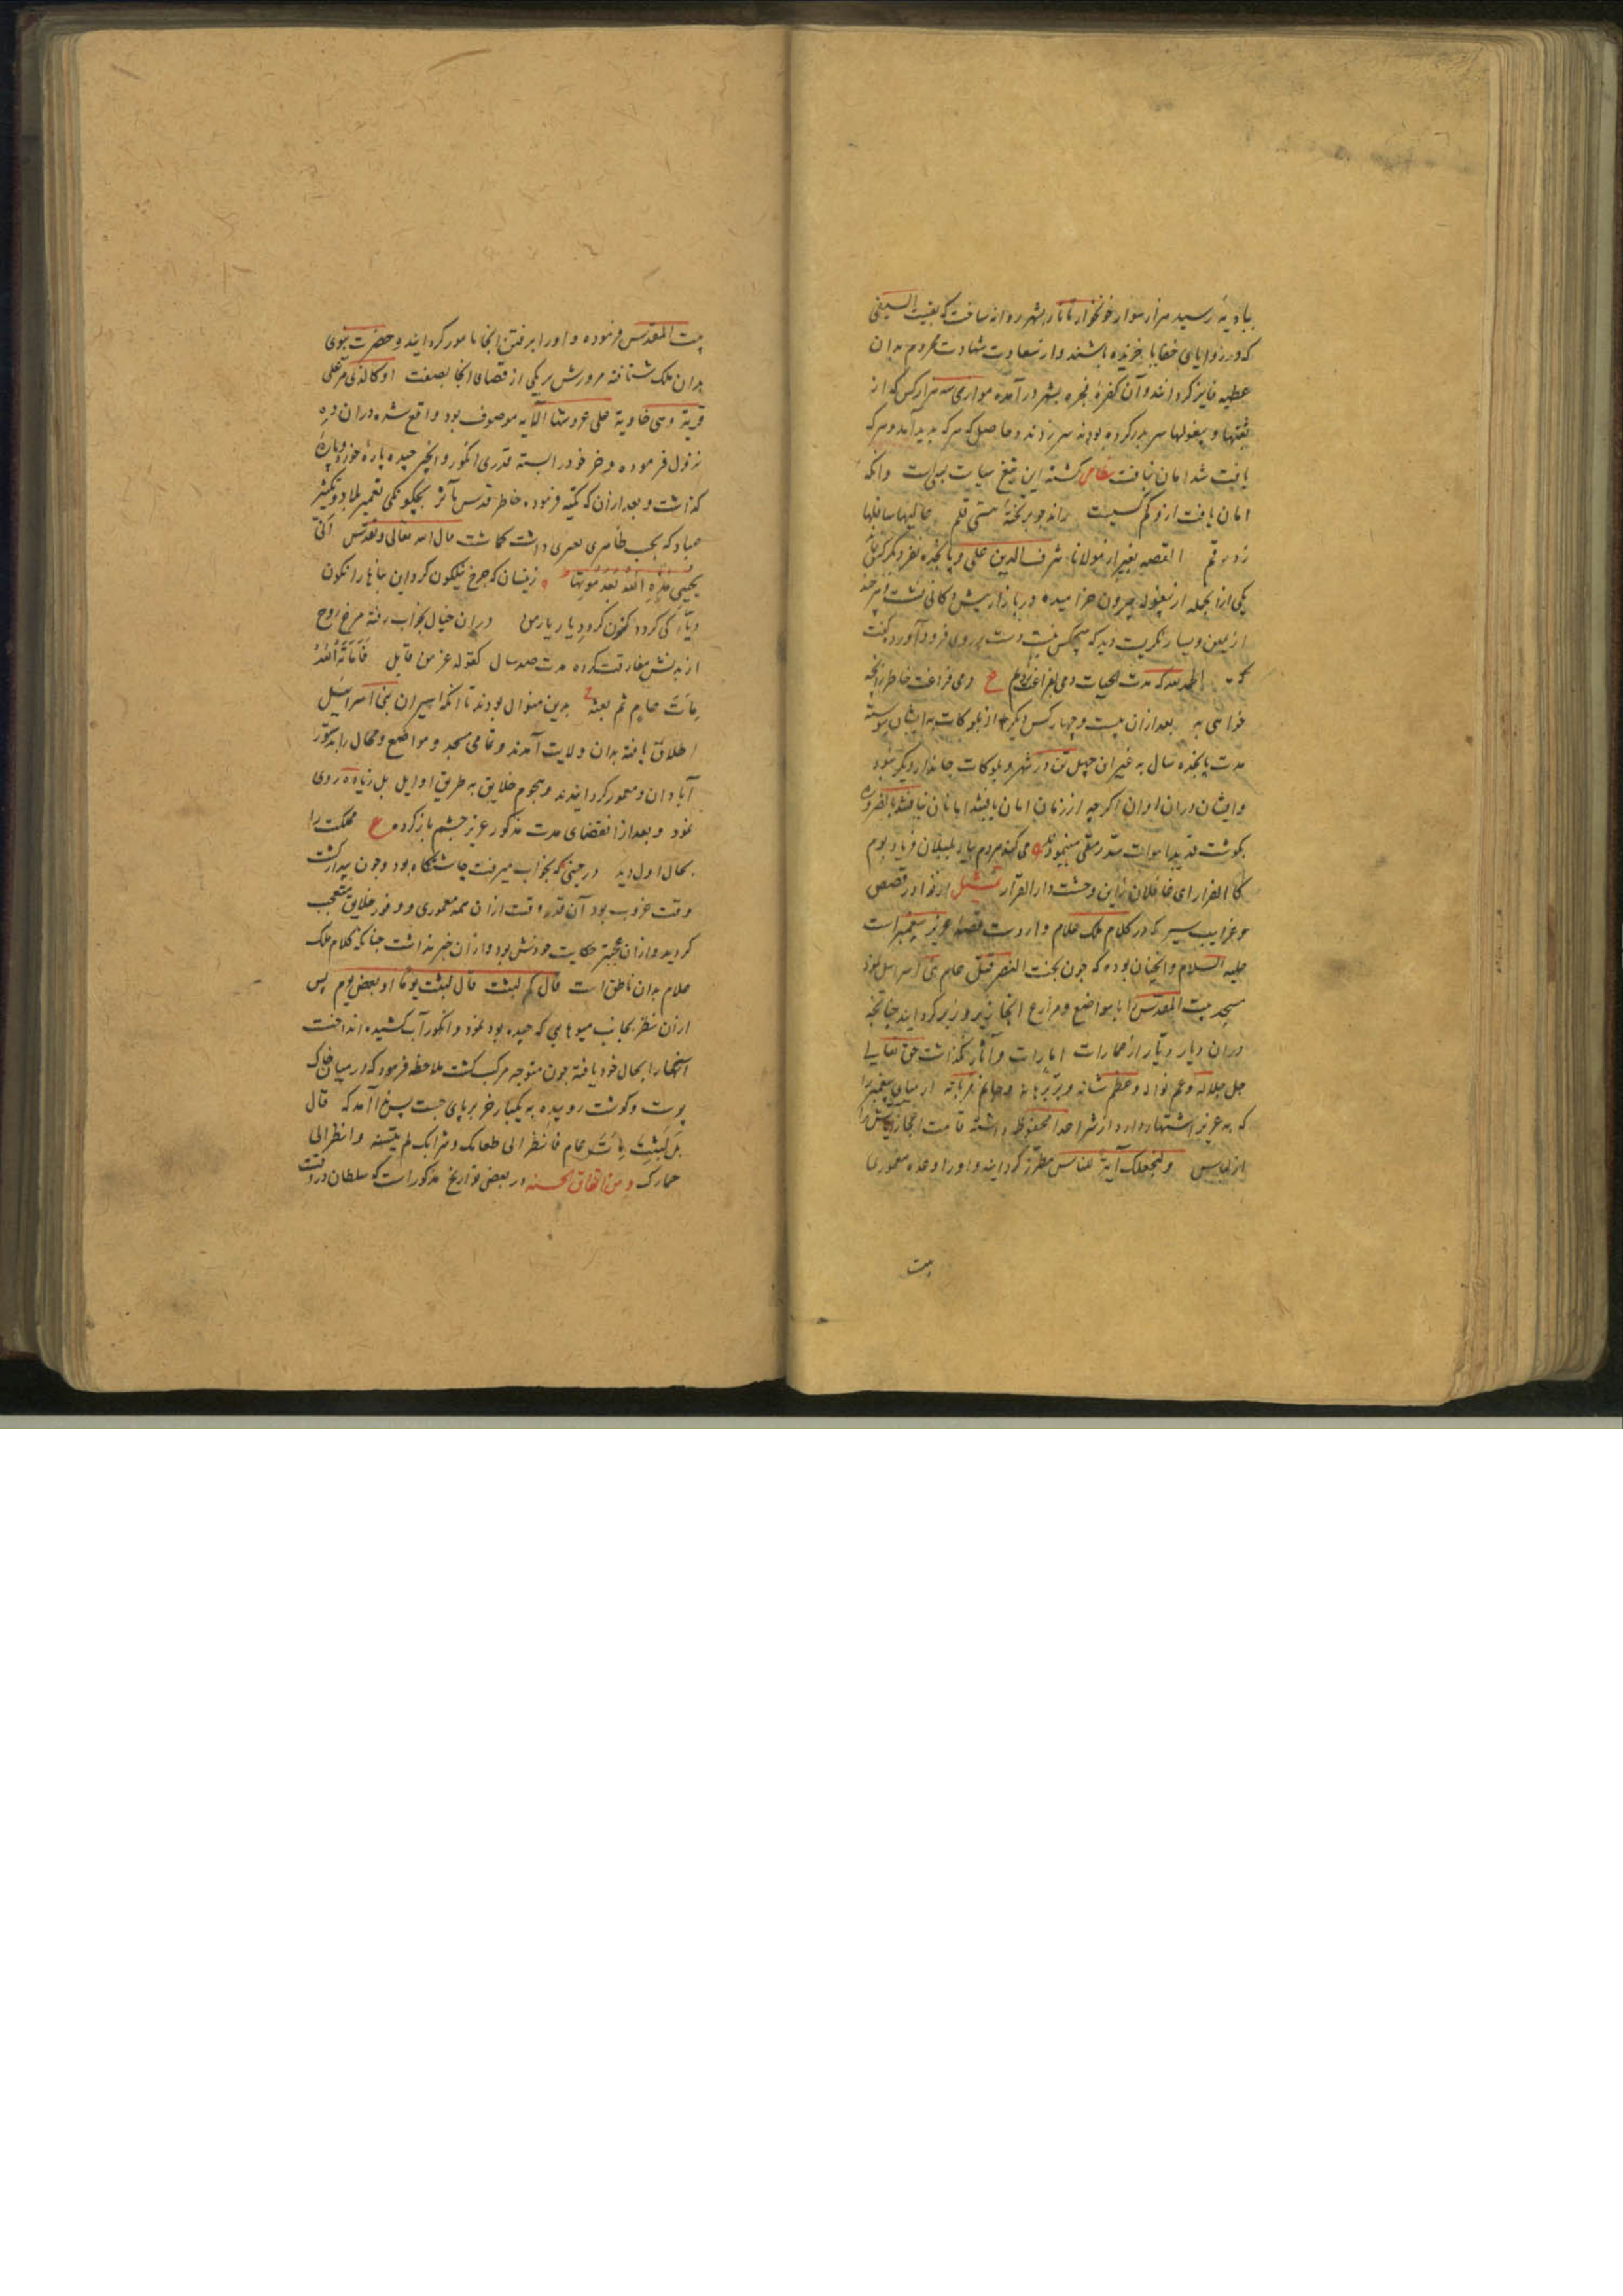 ببادیه رسید هزار سوار خونخوار تاتار بشهر روانه ساخت که بقیت السیفی
که در زوایای خفایا خزیده باشند و از سعادت شهادت محروم بدان
عطیه فایز گردانند و آن کفرهٔ فجره بشهر درآمده موازی سه هزار کس که از
نقبها و بیغولها سر بدر کرده بودند سر زدند و حاصل که هرکه بدید آمد و هرکه
یافت شد امان نیافت کشته این تیغ سیاست بسی است وانکه
امان یافت ازو کم کسیست راند جو بر تختهٔ هستی قلم عالیها سافلها
زد رقم القصه بغیر از مولانا شرف الدین علی و پانزده نفر دیگر کسی نماند
یکی از انجمله از بیغوله بیرون خرامیده در بازار پیش دکانی نشست هرچند
از یمین و یسار نگریست دید که هیچکس نیست دست بر روی فرود آورد گفت
که الحمد لله که مدت الحیات دمی بفراغت زدیم ع دمی فراغت خاطر زانچه
خواهی به بعد از ان بیست و چهار کس دیگر از بلوکات به ایشان پیوسته
مدت پانجده سال به غیر ان چهل تن در شهر و بلوکات جاندار دیگر نبود
و ایشان دران اوان اگرچه از زمان امان یافتند اما نان نیافتند بالضروره
بگوشت قدید اموات سد رمقی مینمودند می کند مردم بیاد بلبلان فریاد بوم
کا الفرار ای غافلان زاین وحشت دار القرار تمثیل از نوادر قصص
و غرایب سیر که در کلام ملک علام واردست قصهٔ عزیر پیغمبر است
علیه السلام وانچنان بوده که چون بخت النصر قتل عام بنی اسرائیل نمود
مسجد بیت المقدس را با مواضع و مزارع انجا زیر و زبر گردانید چنانچه
دران دیار دیار از عمارات امارات و آثار نگذاشت حق تعالی
جل جلاله و عم نواله و عظم شانه و برهانه از انبیای پیغمبر را
که به عزیر اشتهار دارد از شر اعدا محفوظ داشته قامت اعجازش را
از لباس ولنجعلک آیة للناس مطرز گردانید و او را وعده معموری
بیت
بیت المقدس فرموده و او را برفتن انجا مامور گردانید و حضرت نبوی
بدان ملک شتافته مرورش بر یکی از قصبات انجا بصفت او کالذی مر علی
قریة وهی خاویة علی عروشها الآیه موصوف بود واقع شده دران ده
نزول فرموده و خر خود را بسته قدری انگور و انجیر چیده پارهٔ خورد و پارهٔ
گذاشت و بعد از ان که تکیه فرموده خاطر قدس مآثر بچگونگی تعمیر بلاد و تکثیر
عباد که بحسب ظاهری تعسری داشت گماشت قال الله تعالی و تقدس انی
یحیی هذه الله بعد موتها زینسان که چرخ نیلگون کرد این بناها را نگون
دیار کی گردد کنون گرد دیار یار من دران خیال بخواب رفته مرغ روح
از بدنش مفارقت کرده مدت صد سال کقوله عز من قایل فاماته الله
مائة عام ثم بعثه بدین منوال بود تا انکه اسیران بنی اسرائیل
اطلاق یافته بدان ولایت آمدند و تمامی مسجد و مواضع و محال را بدستور
آبادان و معمور گردانیدند و هجوم خلایق به طریق اوایل بل زیاده روی
نمود و بعد از انقضای مدت مذکور عزیر چشم باز کرده ع مملکت را
بحال اول دید در حینی که بخواب میرفت چاشتگاه بود و چون بیدار گشت
وقت غروب بود آن قدر وقت از ان همه معموری و وفور خلایق متعجب
گردید و از ان عجبتر حکایت مردنش بود و از ان خبر نداشت چنانکه کلام ملک
علام بدان ناطق است قال کم لبثت قال لبثت یوما او بعض یوم پس
از ان نظر بجانب میوهایی که چیده بود نمود و انگور آب کشیده انداخت
انجیر را بحال خود یافته چون متوجه مرکب گشت ملاحظه فرمود که در میان خاک
پوست و گوشت روییده به یکبار خر بر پای جست پس ندا آمد که قال
بل لبثت مائة عام فانظر الی طعامک وشرابک لم یتسنه وانظر الی
حمارک و من اتفاق الحسنه در بعض تواریخ مذکور است که سلطان در وقت